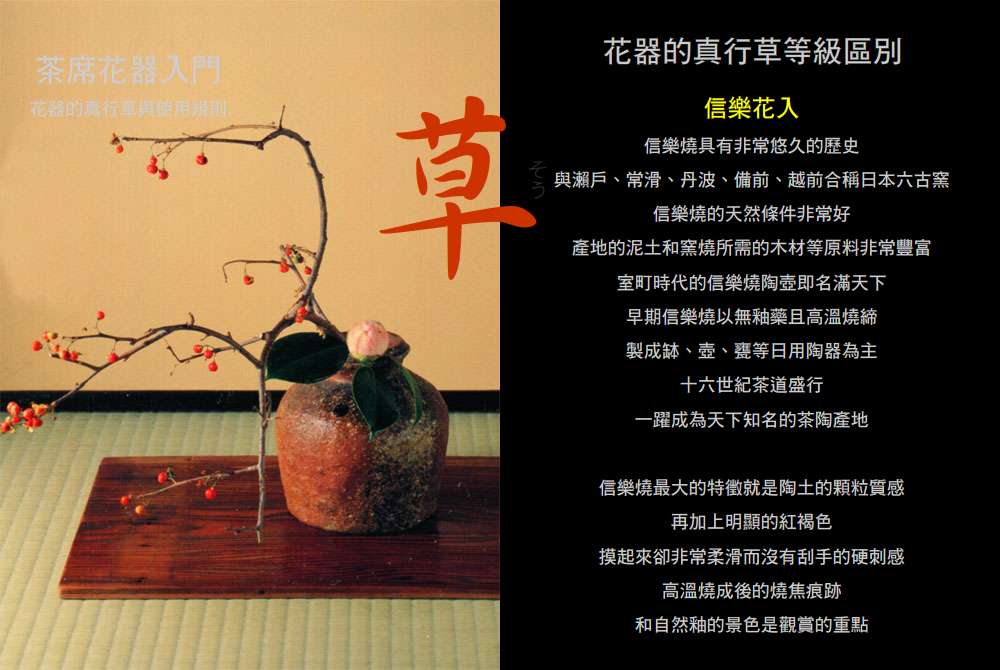 茶席花器入門
花器的真行草與使用規則
草
そう
花器的真行草等級區別
信樂花入
信樂燒具有非常悠久的歷史
與瀨戶、常滑、丹波、備前、越前合稱日本六古窯
信樂燒的天然條件非常好
產地的泥土和窯燒所需的木材等原料非常豐富
室町時代的信樂燒陶壺即名滿天下
早期信樂燒以無釉藥且高溫燒締
製成缽、壺、甕等日用陶器為主
十六世紀茶道盛行
一躍成為天下知名的茶陶產地
信樂燒最大的特徵就是陶土的顆粒質感
再加上明顯的紅褐色
摸起來卻非常柔滑而沒有刮手的硬刺感
高溫燒成後的燒焦痕跡
和自然釉的景色是觀賞的重點